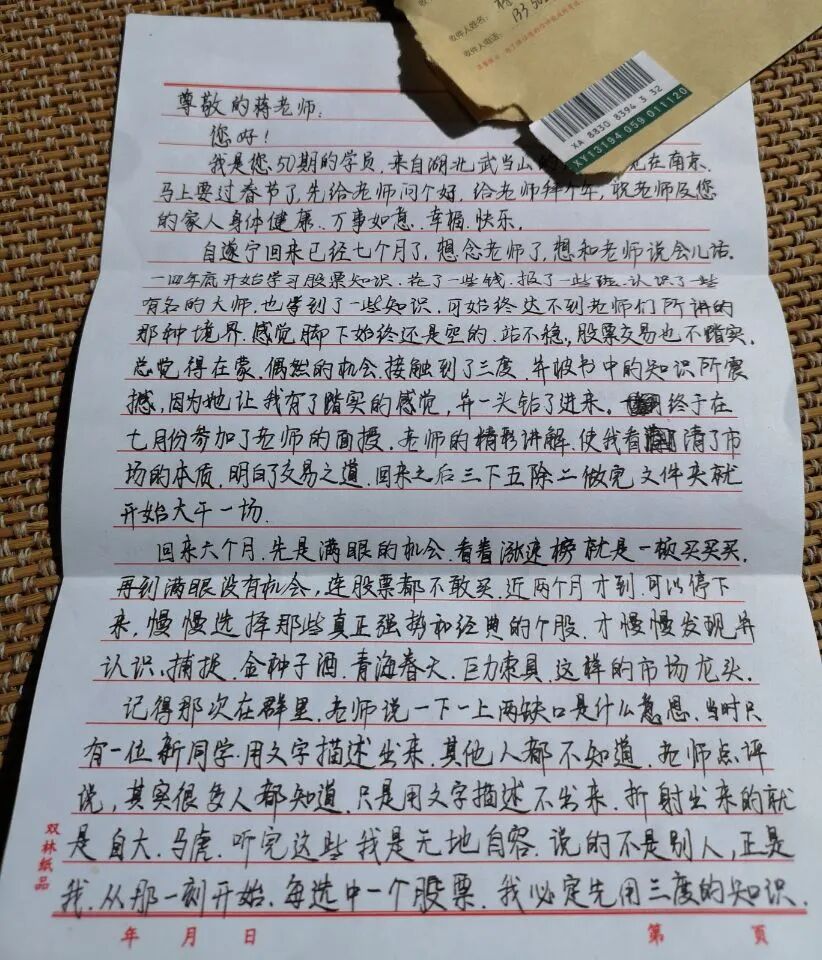 收件人姓名:
收件人电话:
XA 8830 8394 3 32
XY13194 059 011120
尊敬的蒋老师:
您好!
我是您50期的学员,来自湖北武当山的 现在南京.
马上要过春节了,先给老师问个好,给老师拜个年,祝老师及您
的家人身体健康、万事如意、幸福、快乐。
自遂宁回来已经七个月了,想念老师了,想和老师说会儿话.
一四年底开始学习股票知识.花了一些钱.报了一些班.认识了一些
有名的大师,也学到了一些知识.可始终达不到老师们所讲的
那种境界.感觉脚下始终还是空的.站不稳,股票交易也不踏实.
总觉得在蒙.偶然的机会.接触到了三度.并被书中的知识所震
撼,因为她让我有了踏实的感觉,并一头钻了进来。终于在
七月份参加了老师的面授.老师的精彩讲解.使我看清了市
场的本质.明白了交易之道.回来之后三下五除二做完文件夹就
开始大干一场.
回来六个月.先是满眼的机会.看着涨速榜就是一顿买买买.
再到满眼没有机会,连股票都不敢买.近两个月才到.可以停下
来.慢慢选择那些真正强势和经典的个股.才慢慢发现并
认识、捕捉.金种子酒.青海春天.巨力索具.这样的市场龙头.
记得那次在群里.老师说一下一上两缺口是什么意思.当时只
有一位新同学.用文字描述出来.其他人都不知道.老师点评
说,其实很多人都知道.只是用文字描述不出来.折射出来的就
是自大.马虎.听完这些我是无地自容.说的不是别人,正是
我.从那一刻开始.每选中一个股票.我必定先用三度的知识.
双林纸品
年 月 日 第 页